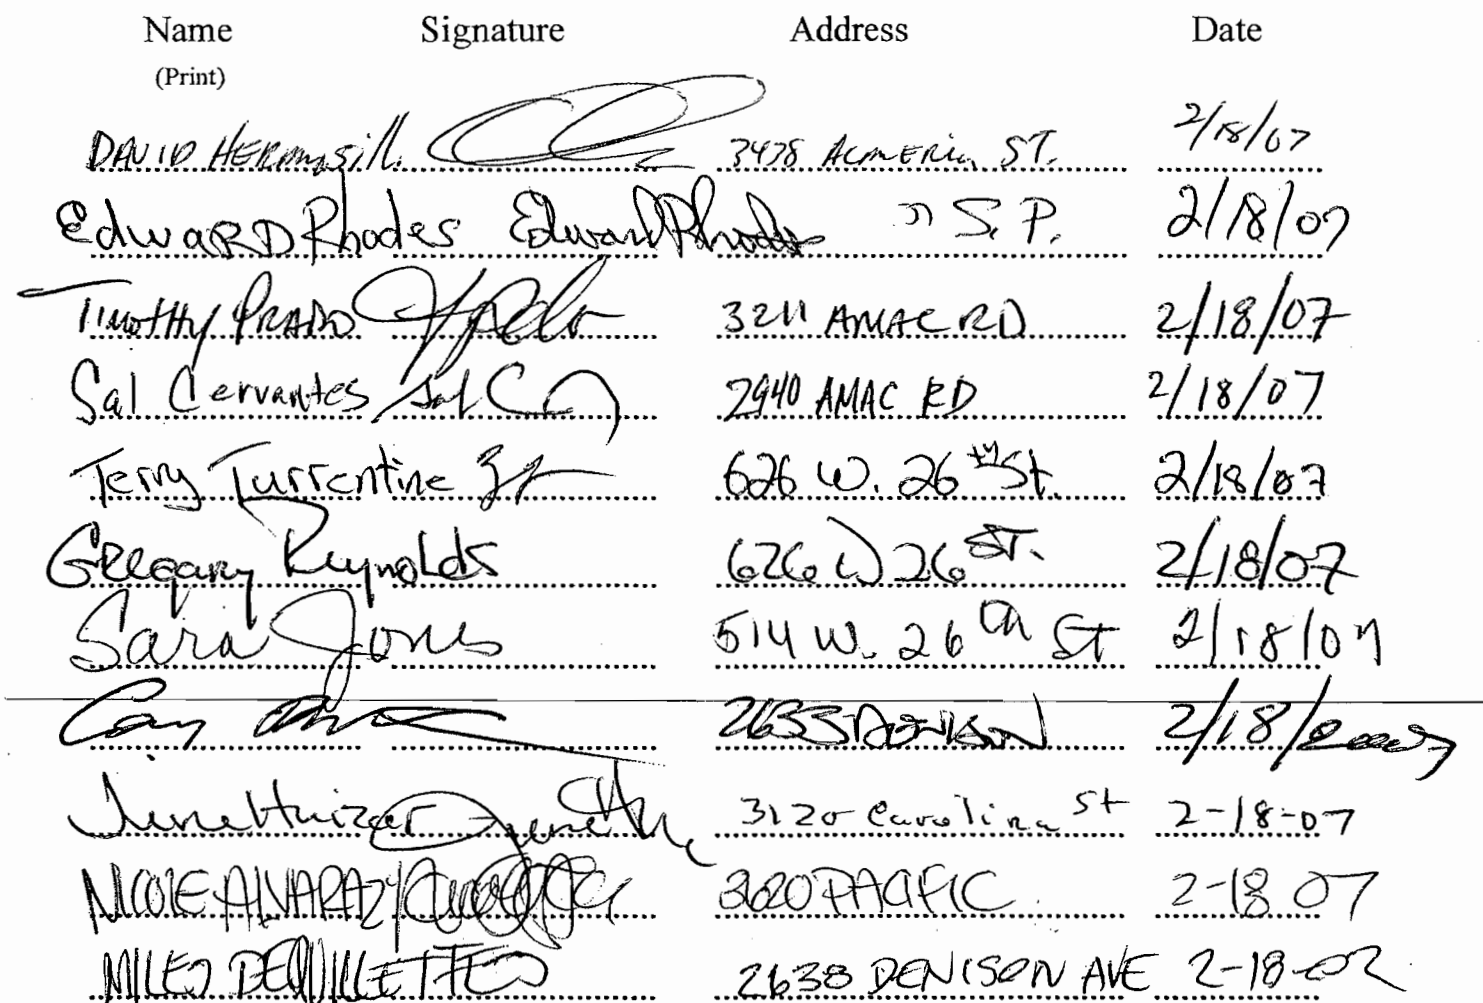 Name Signature Address Date
(Print)
DAVID HERMOSILL. 3478 ALMERIA ST. 2/18/07
Edward Rhodes Edward Rhodes " S.P. 2/18/07
Timothy PRADO 3211 AMAC RD 2/18/07
Sal Cervantes Sal C 2940 AMAC RD 2/18/07
Terry Turrentine 626 W. 26th St. 2/18/07
Gregary Reynolds 626 W 26 ST. 2/18/07
Sara Jones 514 W. 26th St 2/18/07
2633 DENISON 2/18/2007
June Huizar June 3120 Carolina St 2-18-07
NICOLE ALVARAZ 3620 PACIFIC 2-18 07
MILES 2638 DENISON AVE 2-18-02